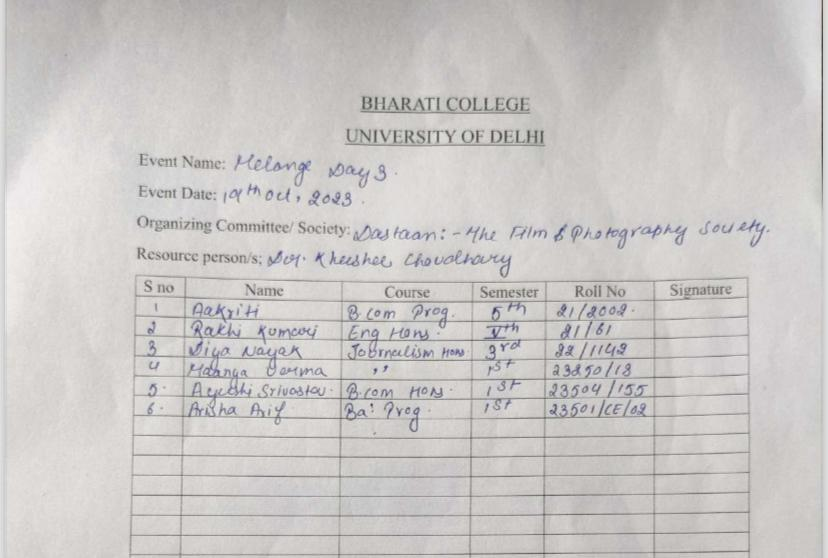 BHARATI COLLEGE
UNIVERSITY OF DELHI
Event Name: Melange Day 3.
Event Date: 19th Oct, 2023.
Organizing Committee/ Society: Dastaan:- The Film & Photography Society.
Resource person/s: Khushee Choudhary
S no Name Course Semester Roll No Signature
1 Aakriti B.Com Prog. 5th 21/2002.
2 Rakhi Kumari Eng Hons. Vth 21/61
3 Diya Nayak Journalism Hons 3rd 22/1142
4 Verma ,, 1st 23250/18
5. Ayushi Srivastav. B.com Hons. 1st 23504/155
6. Arisha Arif Ba. Prog. 1st 23501/CE/02